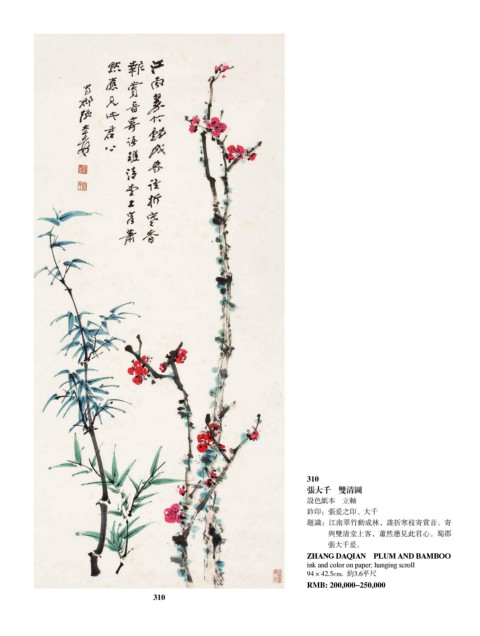 江南翠竹動成林誰折寒香
報賞音寄語雙清堂上客蕭
然應見此君心
蜀郡張大千爰
310
310
張大千　雙清圖
設色紙本　立軸
鈐印：張爰之印、大千
題識：江南翠竹動成林，誰折寒枝寄賞音。寄
與雙清堂上客，蕭然應見此君心。蜀郡
張大千爰。
ZHANG DAQIAN　PLUM AND BAMBOO
ink and color on paper; hanging scroll
94×42.5cm.　約3.6平尺
RMB: 200,000–250,000